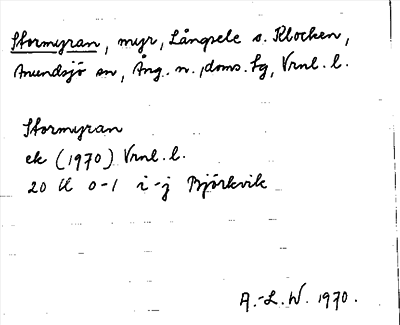 Stormyran, myr, Långsele s. Klocken,
Anundsjö sn, Ång. n. doms. tg, Vrnl. l.
Stormyran
ek (1970) Vrnl. l.
20 K 0-1 i-j Björkvik
A.-L. W. 1970.